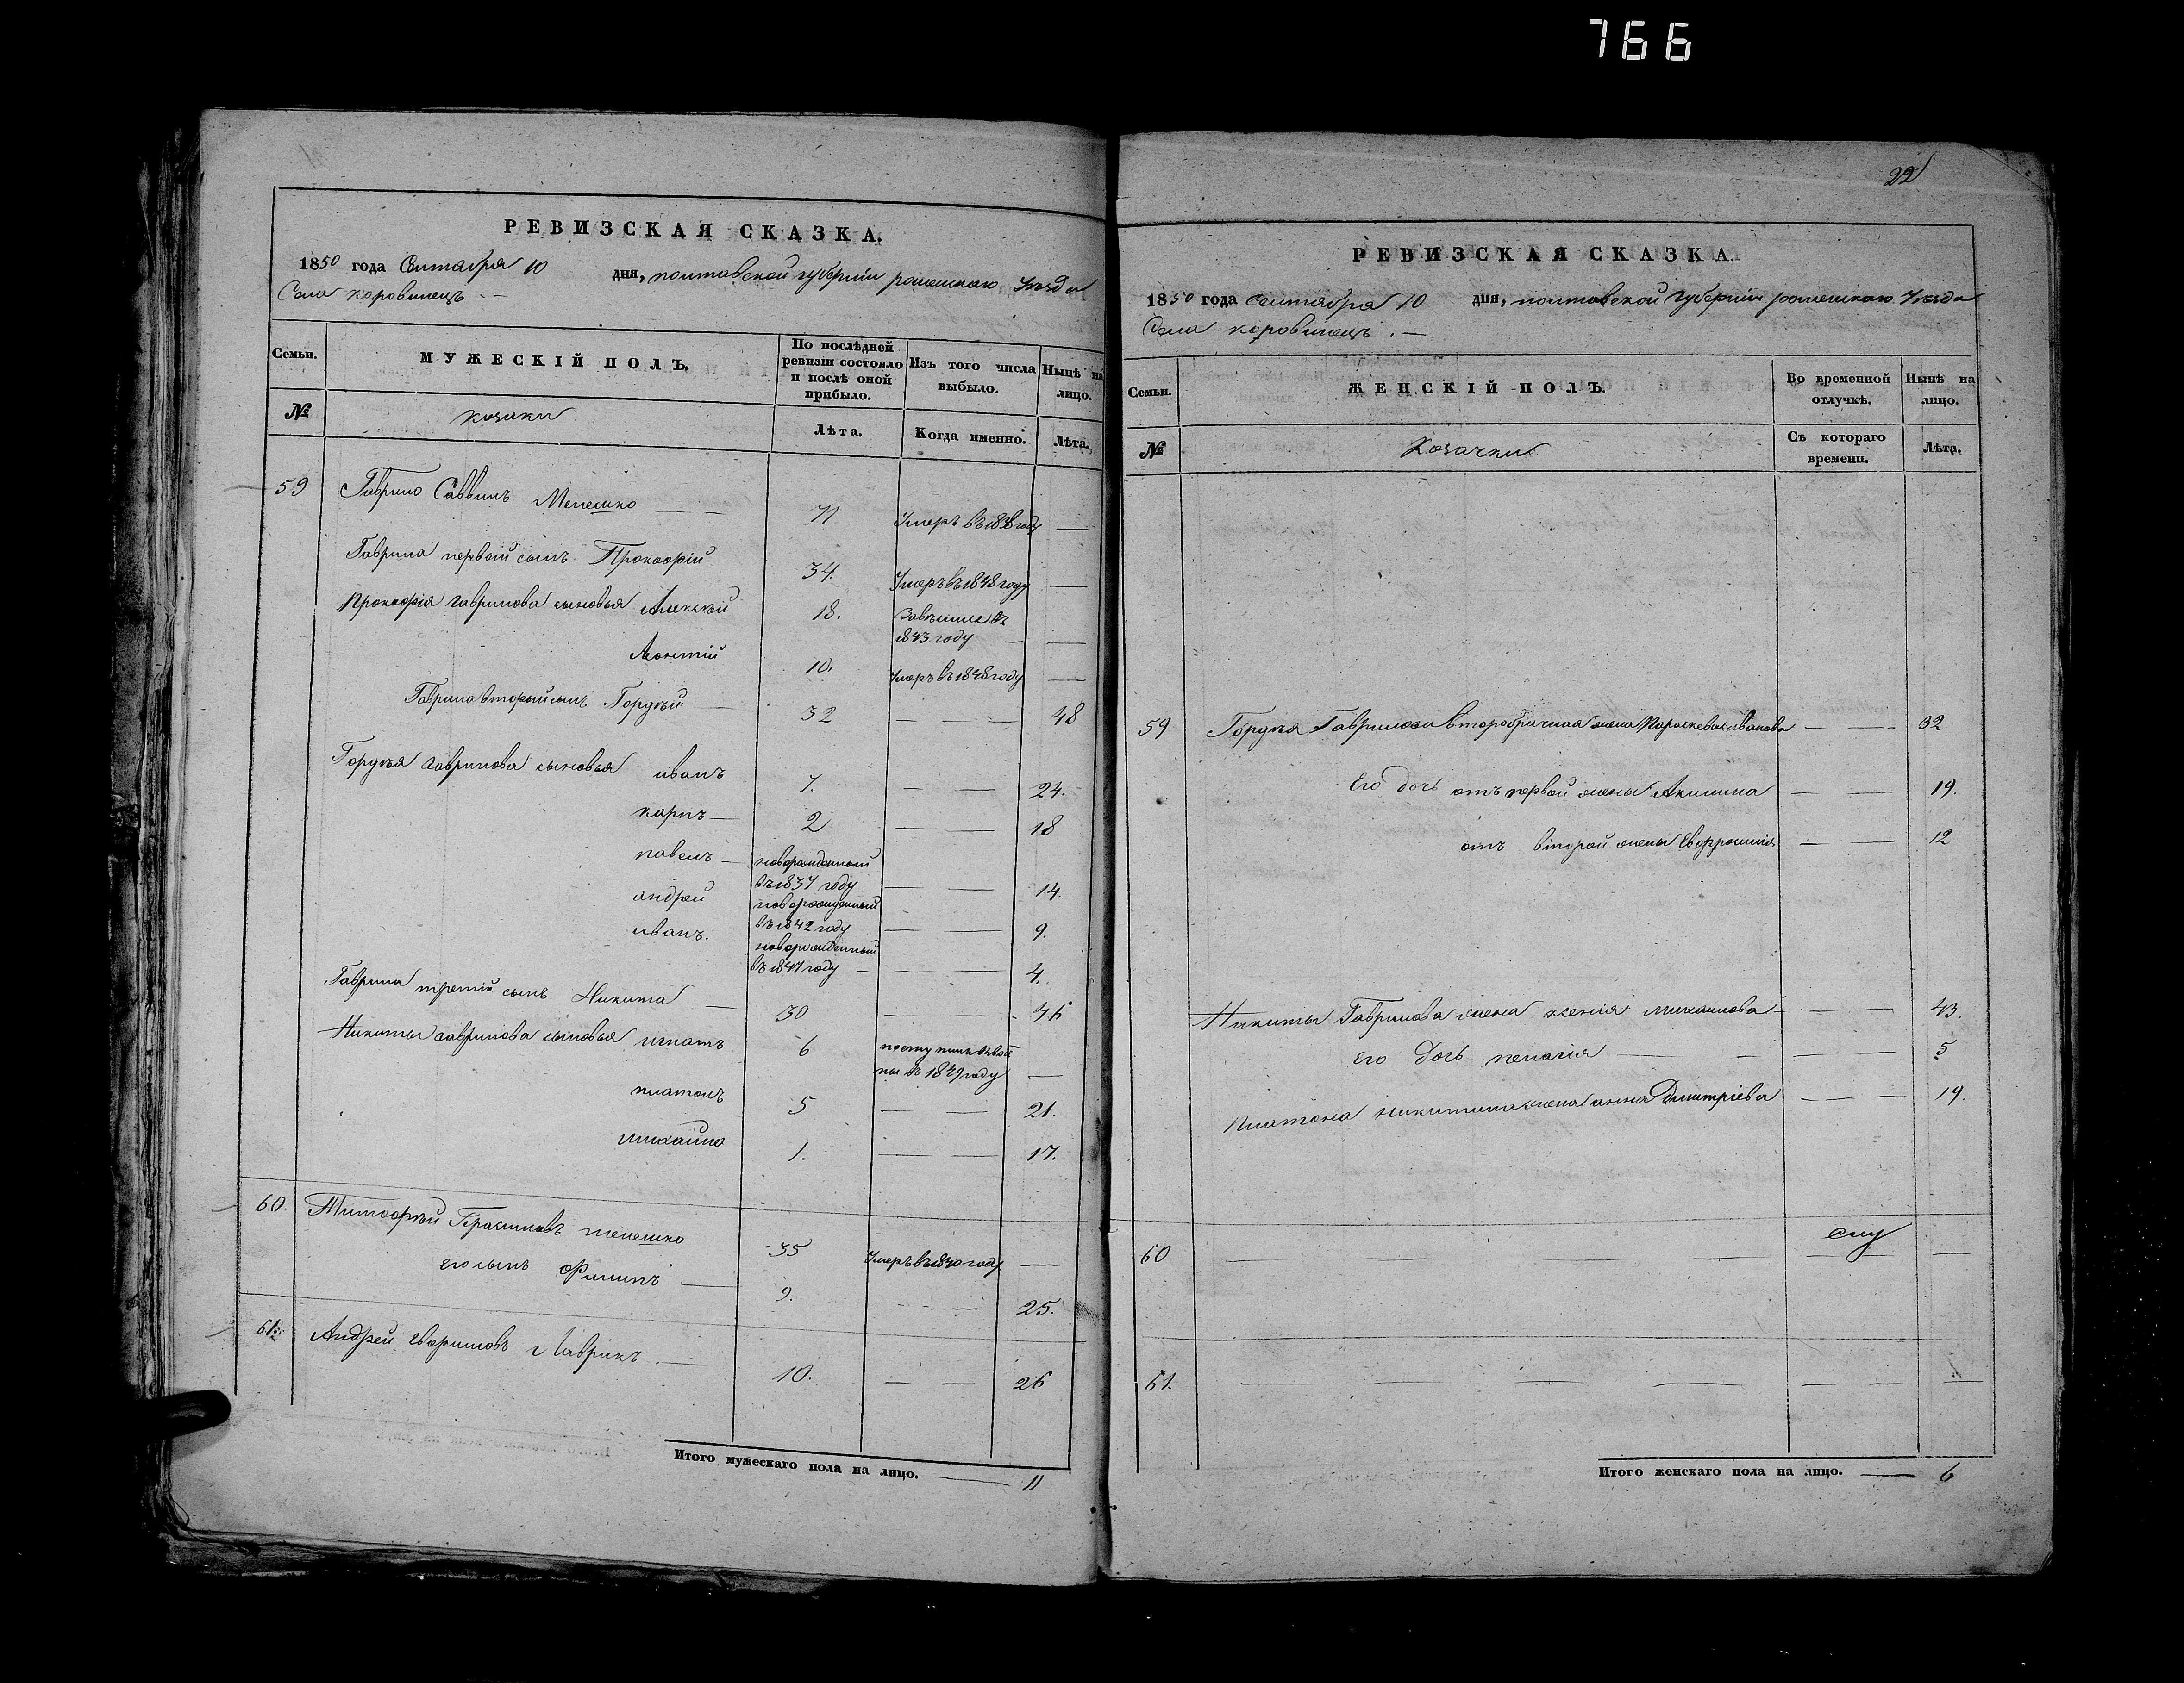 766
РЕВИЗСКАЯ СКАЗКА.
1850 года Сентября 10 дня, полтавской губернїи роменскаго Уѣзда
Села коровинецъ. —
Семьи.
МУЖЕСКІЙ ПОЛЪ.
По послѣдней ревизіи состояло и послѣ оной прибыло.
Изъ того числа выбыло.
Нынѣ на лицо.
№
козаки
Лѣта.
Когда именно.
Лѣта.
59 Гаврило Саввинъ Мелешко — 71 Умеръ въ 1838 году —
Гаврила первый сынъ Прокофій 34. Умеръ въ 1848 году —
Прокофія гаврилова сыновья Алексѣй 18. 1843 году —
Леонтій 10. Умеръ въ 1848 году —
Гаврила вторый сынъ Гордѣй — 32 — — — 48
Гордѣя гаврилова сыновья иванъ 7. — — 24.
карпъ — 2 — — 18
павелъ — новорожденный въ 1837 году — — 14.
андрей новорожденный въ 1842 году — — 9.
иванъ. новорожденный въ 1847 году — — — 4.
Гаврила третій сынъ Никита — 30 — — 46
Никиты гаврилова сыновья игнатъ 6 въ 1849 году —
платонъ 5 — — 21.
михайло 1. — — 17.
60. Тимофѣй Герасимовъ мелешко 35 Умеръ въ 1840 году —
его сынъ Филипъ — 9. — — 25.
61. Андрей Евфимовъ Лаврикъ. — 10. — — 26
Итого мужескаго пола на лицо. — 11
22
РЕВИЗСКАЯ СКАЗКА.
1850 года сентября 10 дня, полтавской Губерніи роменскаго Уѣзда
Села коровинецъ. —
Семьи.
ЖЕНСКІЙ ПОЛЪ.
Во временной отлучкѣ.
Нынѣ на лицо.
№
Козачки
Съ котораго времени.
Лѣта.
59 Гордѣя Гаврилова второбрачная жена Параскева иванова — — 32
Его дочь отъ первой жены Акилина — — 19.
отъ второй жены Евфросинія — — 12
Никиты Гаврилова жена ксенія михайлова — — — 43.
Его дочь пелагія — — — 5
Платона никитина жена анна Дмитріева — — — 19.
60 — — — —
61. — — — — — —
Итого женскаго пола на лицо. — 6